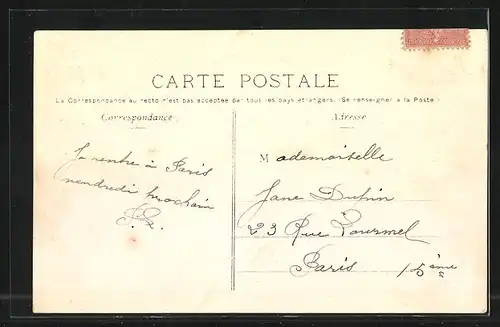 CARTE POSTALE
La Correspondance au recto n'est pas acceptée par tous les pays étrangers. (Se renseigner à la Poste)
Correspondance
Adresse
Je rentre à Paris
vendredi prochain
Mademoiselle
Jane Dupin
23 Rue Lourmel
Paris 15ème